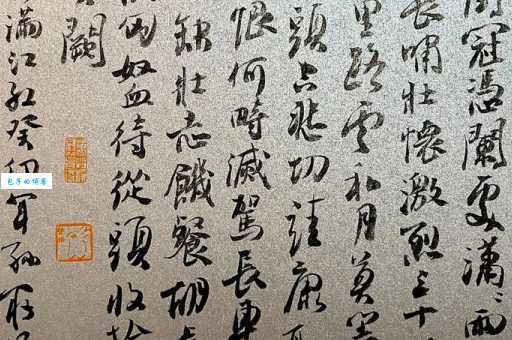 冠憑闌處瀟瀟雨
長嘯壯懷激烈三十
里路雲和月莫等
頭空悲切靖康
恨何時滅駕長車
缺壯志饑餐胡
匈奴血待從頭收拾
闕
滿江紅癸卯